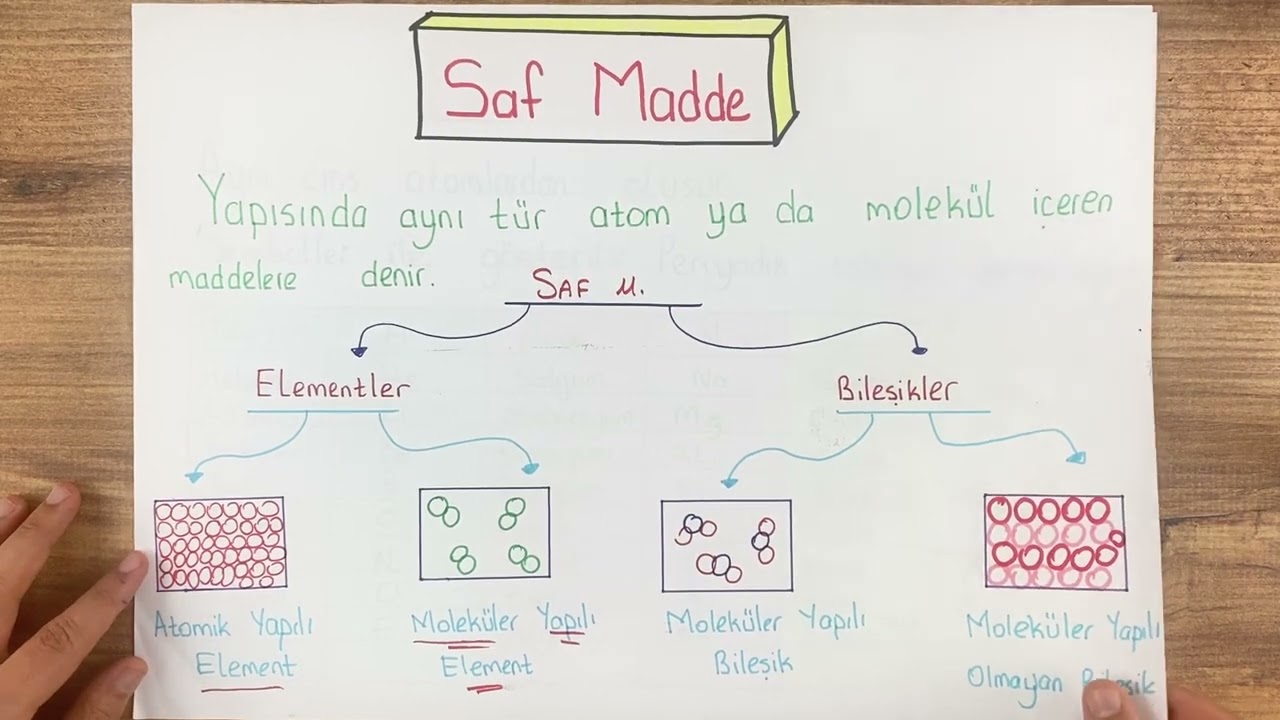 Saf Madde
Yapısında aynı tür atom ya da molekül iceren
maddelere denir.
SAF M.
Elementler
Bileşikler
Atomik Yapılı
Element
Moleküler Yapılı
Element
Moleküler Yapılı
Bileşik
Moleküler Yapılı
Olmayan Bileşik